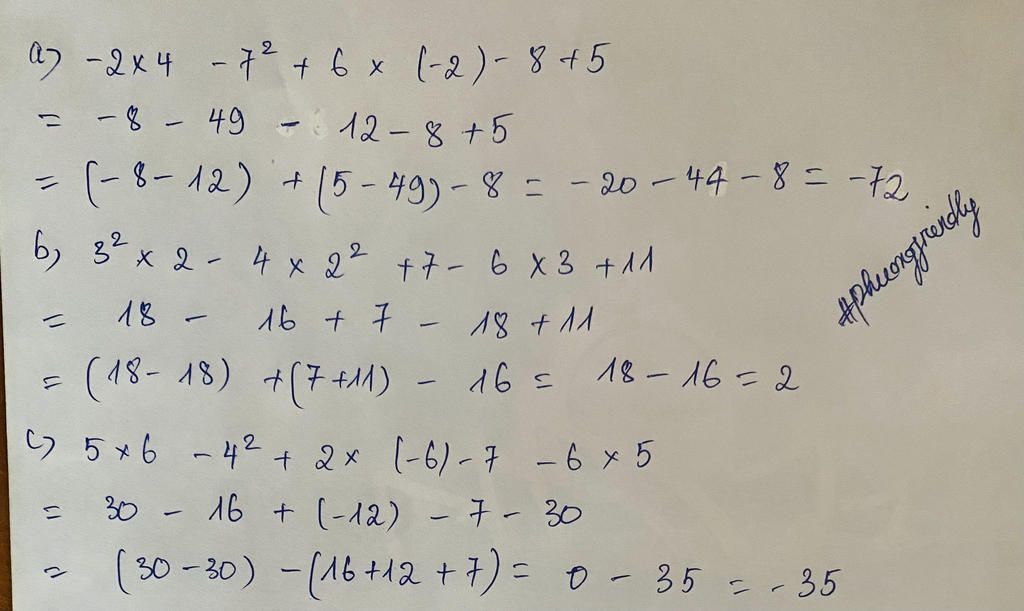 a) -2 x 4 - 7² + 6 x (-2) - 8 + 5
= -8 - 49 - 12 - 8 + 5
= (-8 - 12) + (5 - 49) - 8 = -20 - 44 - 8 = -72
b) 3² x 2 - 4 x 2² + 7 - 6 x 3 + 11
= 18 - 16 + 7 - 18 + 11
= (18 - 18) + (7 + 11) - 16 = 18 - 16 = 2
#phuongfriendly
c) 5 x 6 - 4² + 2 x (-6) - 7 - 6 x 5
= 30 - 16 + (-12) - 7 - 30
= (30 - 30) - (16 + 12 + 7) = 0 - 35 = -35